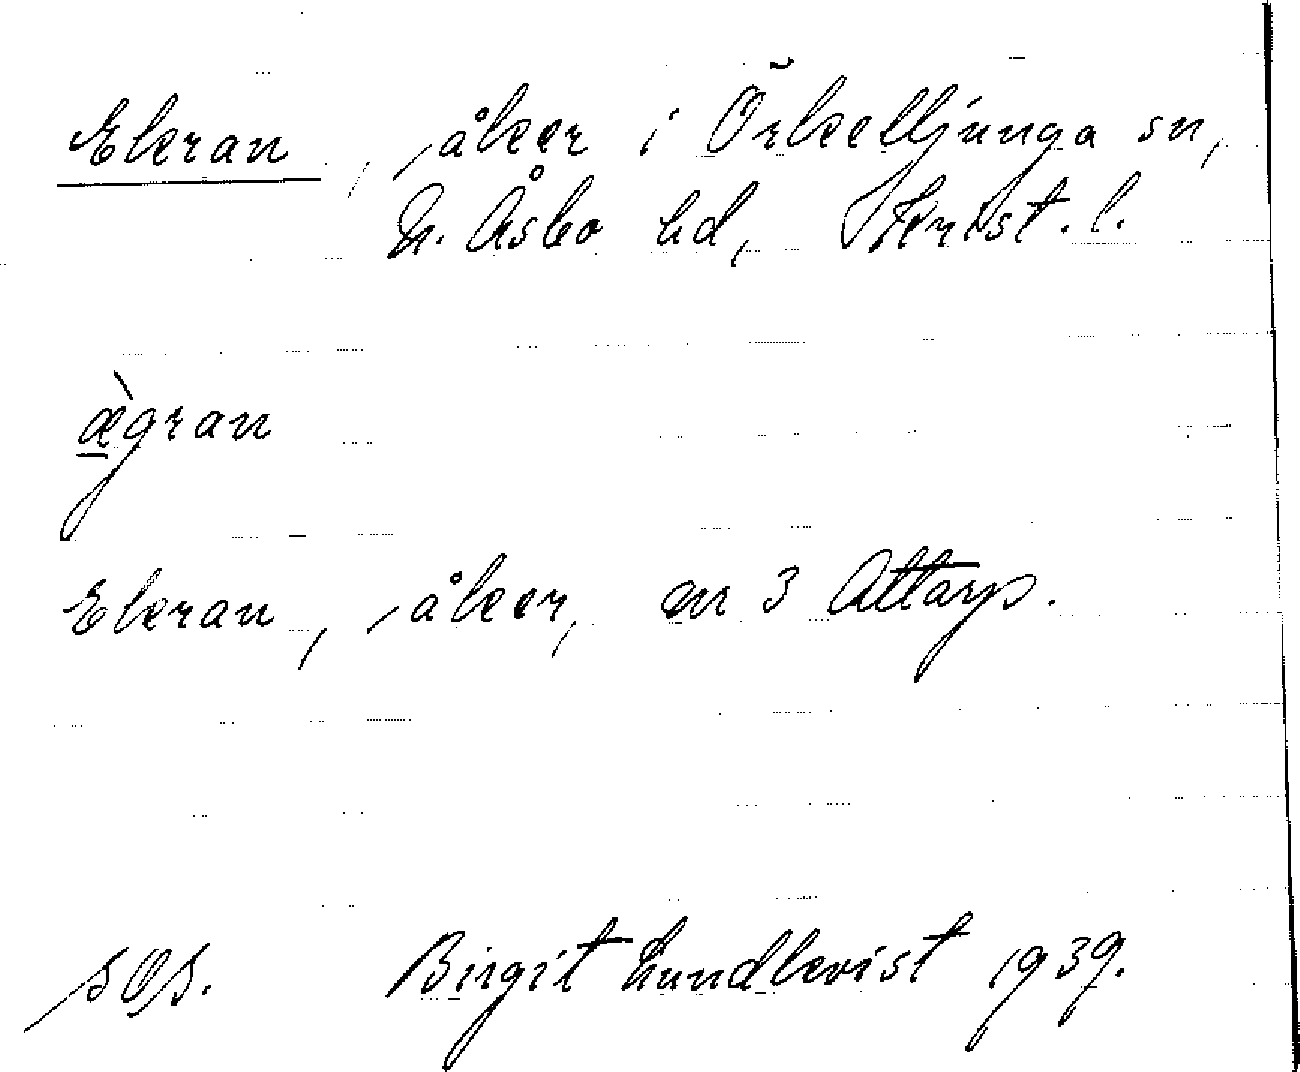 Ekran, åker i Örkelljunga sn,
N. Åsbo hd, Krist. l.
ægran
Ekran, åker, nr 3 Attarp.
sOs. Birgit Lundkvist 1939.